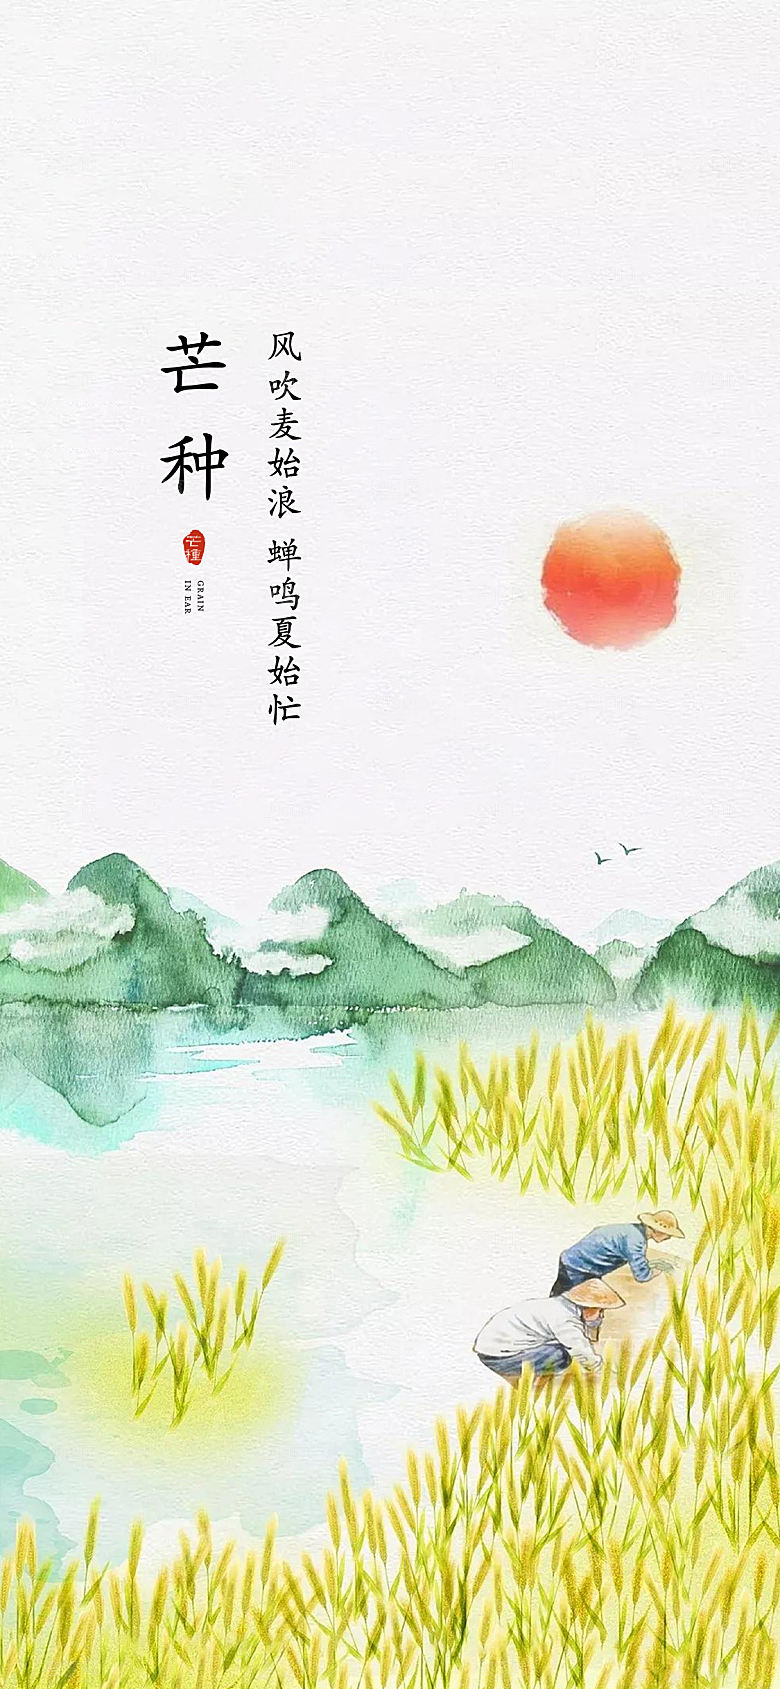 芒种
芒種
GRAIN
IN EAR
风吹麦始浪 蝉鸣夏始忙